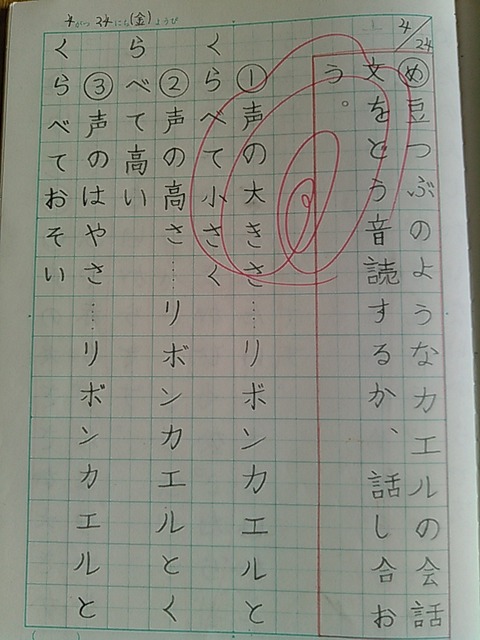 4がつ24にち(金)ようび
4/24
め 豆つぶのようなカエルの会話
文をどう音読するか、話し合お
う。
①声の大きさ……リボンカエルと
くらべて小さく
②声の高さ……リボンカエルとく
らべて高い
③声のはやさ……リボンカエルと
くらべておそい